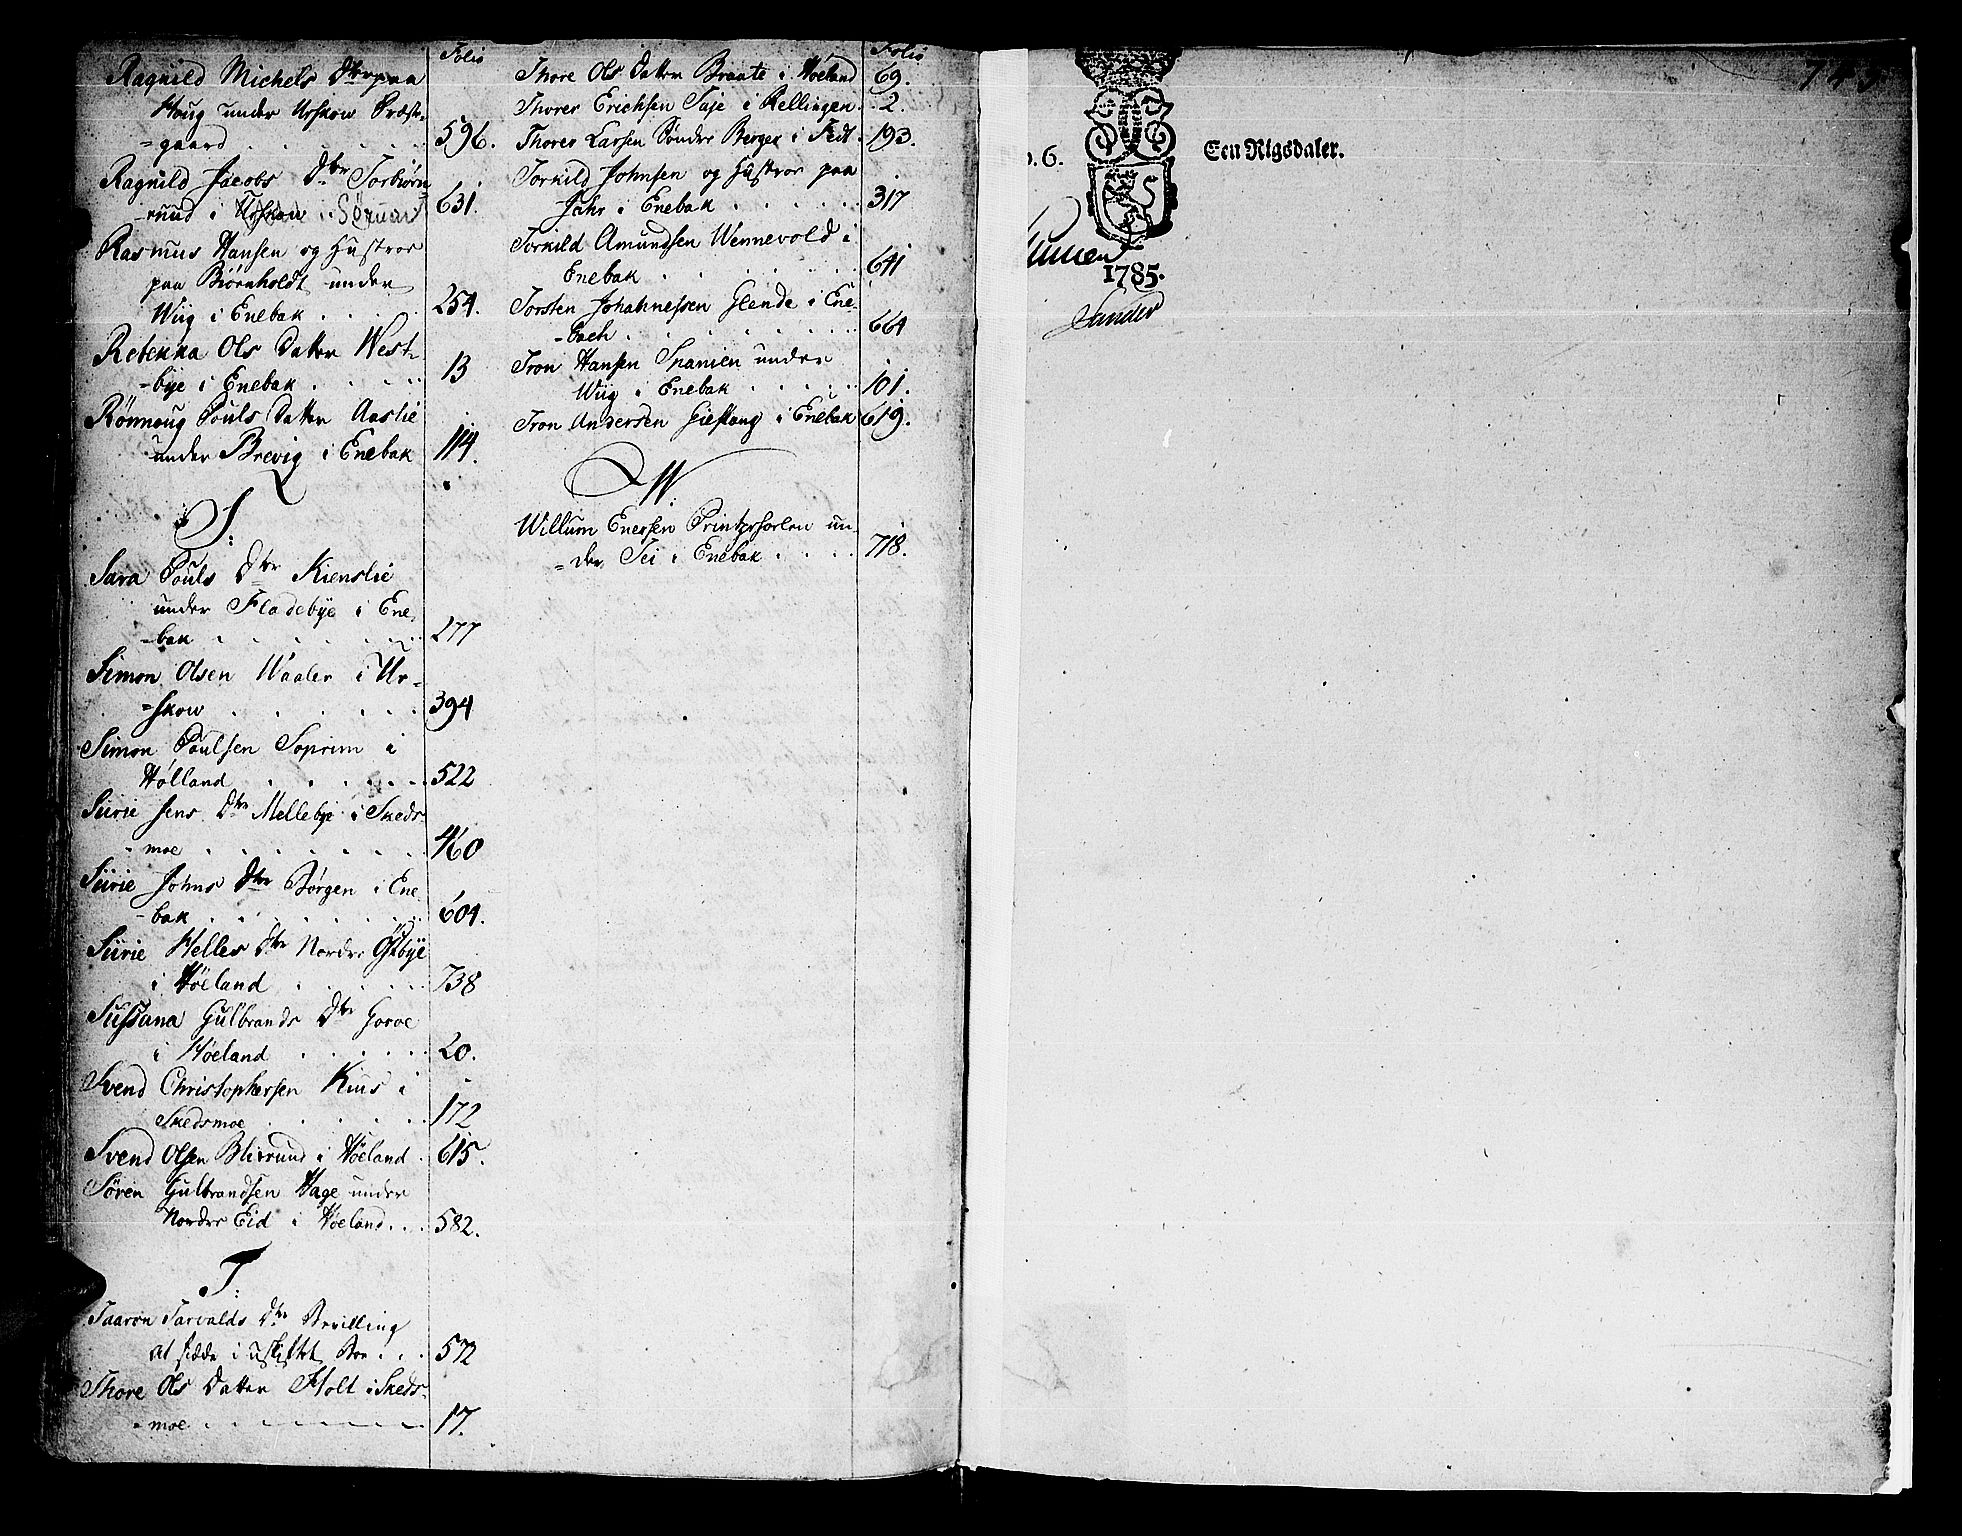 Folio
Ragnild Michels Dtr paa
Houg under Urskow Præst-
=gaard . . . . . . 596.
Ragnild Jacobs Dtr Torbiørn
-ruud i Urskow i Sørum 631.
Rasmus Hansen og Hustroe
paa Biørnholdt under
Wiig i Enebak . . . . 254.
Rebekka Ols Datter West-
-bye i Enebak . . . . . 13
Rönnoug Pouls Datter Aaslie
under Brevig i Enebak 114.
S:
Sara Pouls Dtr Kienslie
under Fladebye i Ene-
-bak . . . . . . . 277
Simon Olsen Waaler i Ur-
=skow . . . . . . 394
Simon Poulsen Soprim i
Hølland . . . . . . 522
Siirie Jens Dtr Mellebye i Skeds-
-moe . . . . . . . 460
Siirie Johns Dtr Børgen i Ene
-bak . . . . . . . 604.
Siirie Helles Dtr Nordre Østbye
i Høeland . . . . . 738
Sussana Gulbrands Dtr Goroe
i Høeland . . . . . . 20.
Svend Christophersen Kius i
Skedsmoe . . . . . . 172
Svend Olsen Blixrund i Høeland . 615.
Søren Gulbrandsen Hage under
Nordre Eid i Høeland . . . 582.
T:
Taaron Tarvalds Dtr Bevilling
at sidde i uskiftet Boe . . . 572
Thore Ols Datter Holt i Skeds-
-moe . . . . . . . 17.
Folio
Thore Ols Datter Braate i Høeland 69.
Thorer Erichsen Taje i Rellingen . . 2.
Thorer Larsen Søndre Berger i Fedt . 193.
Torkild Johnsen og Hustroe paa
Jahr i Enebak . . . . . . 317
Torkild Amundsen Wennevold i
Enebak . . . . . . 641
Torsten Johannessen Glende i Ene-
-bach . . . . . . . . 664
Tron Hansen Spanien under
Wiig i Enebak . . . . . 101.
Tron Andersen Gieslang i Enebak 619.
W:
Willum Enersen Printzersorlen un-
=der Tei i Enebak . . . . 718.
743
o. 6. Een Rigsdaler.
1785.
Sander